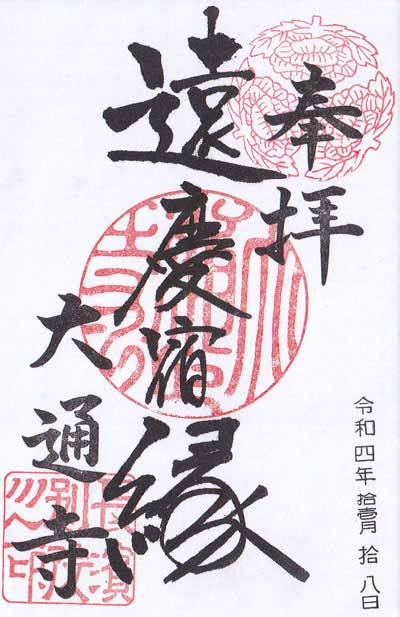 奉拝
遠慶宿縁
大通寺
令和四年拾壱月拾八日
長濱
別院